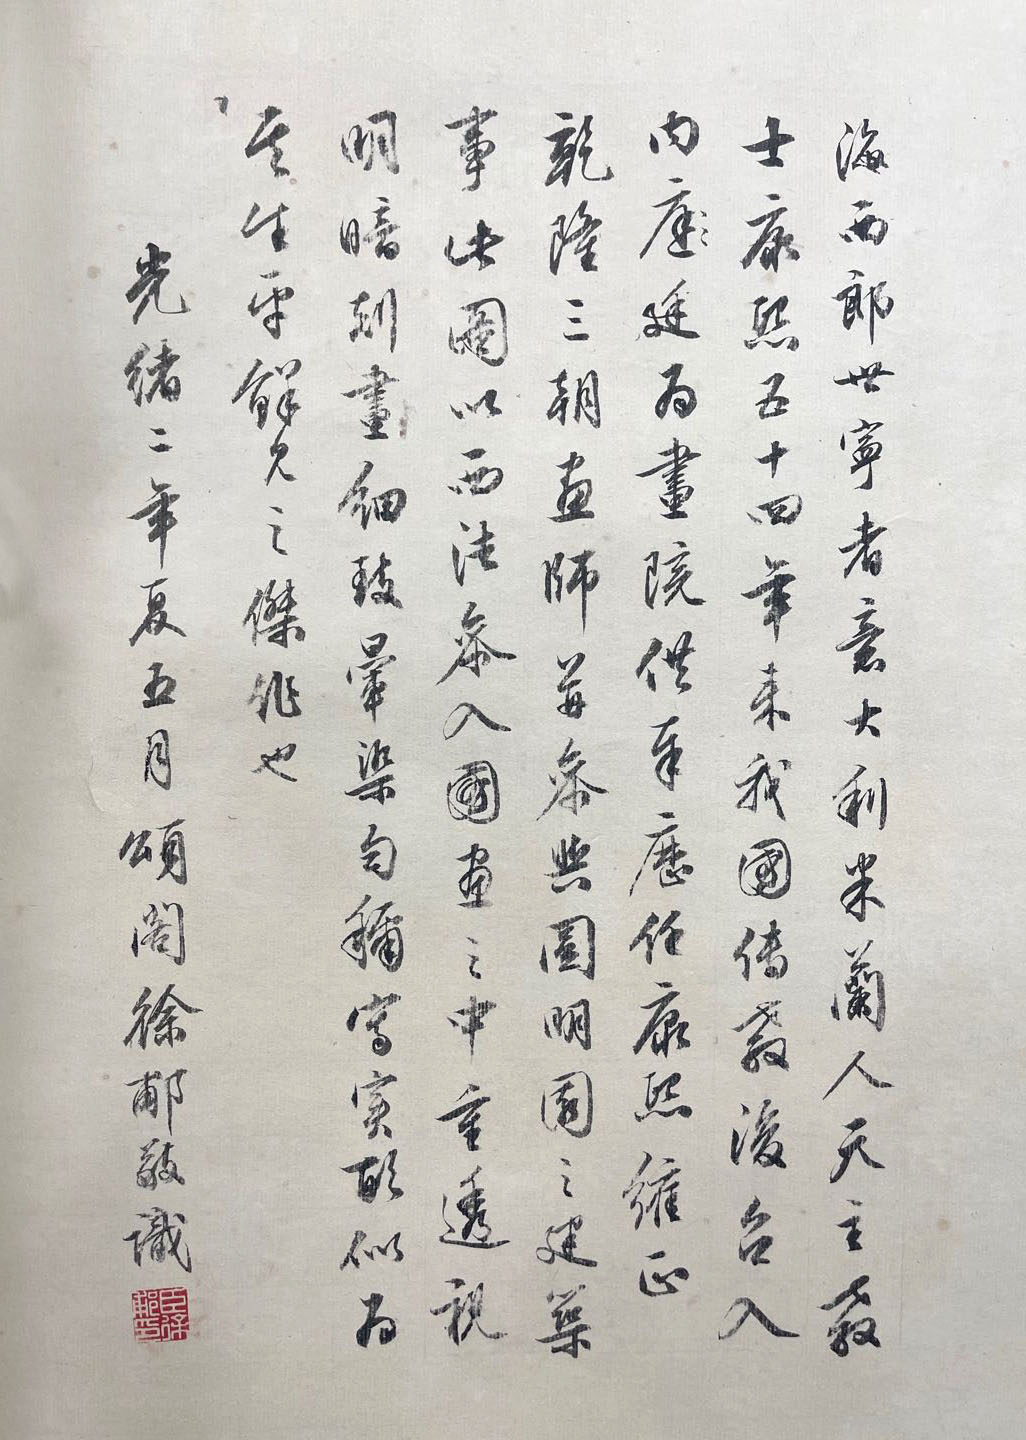 海西郎世寧者意大利米蘭人天主教
士康熙五十四年来我國傳教後召入
内廷為畫院供奉歷任康熙雍正
乾隆三朝画師並参與圓明園之建築
事此圖以西法参入國画之中重透視
明暗刻畫細致暈染匀稱寫實酷似為
其生平鮮見之傑作也
光緒二年夏五月頌閣徐郙敬識
臣徐郙印